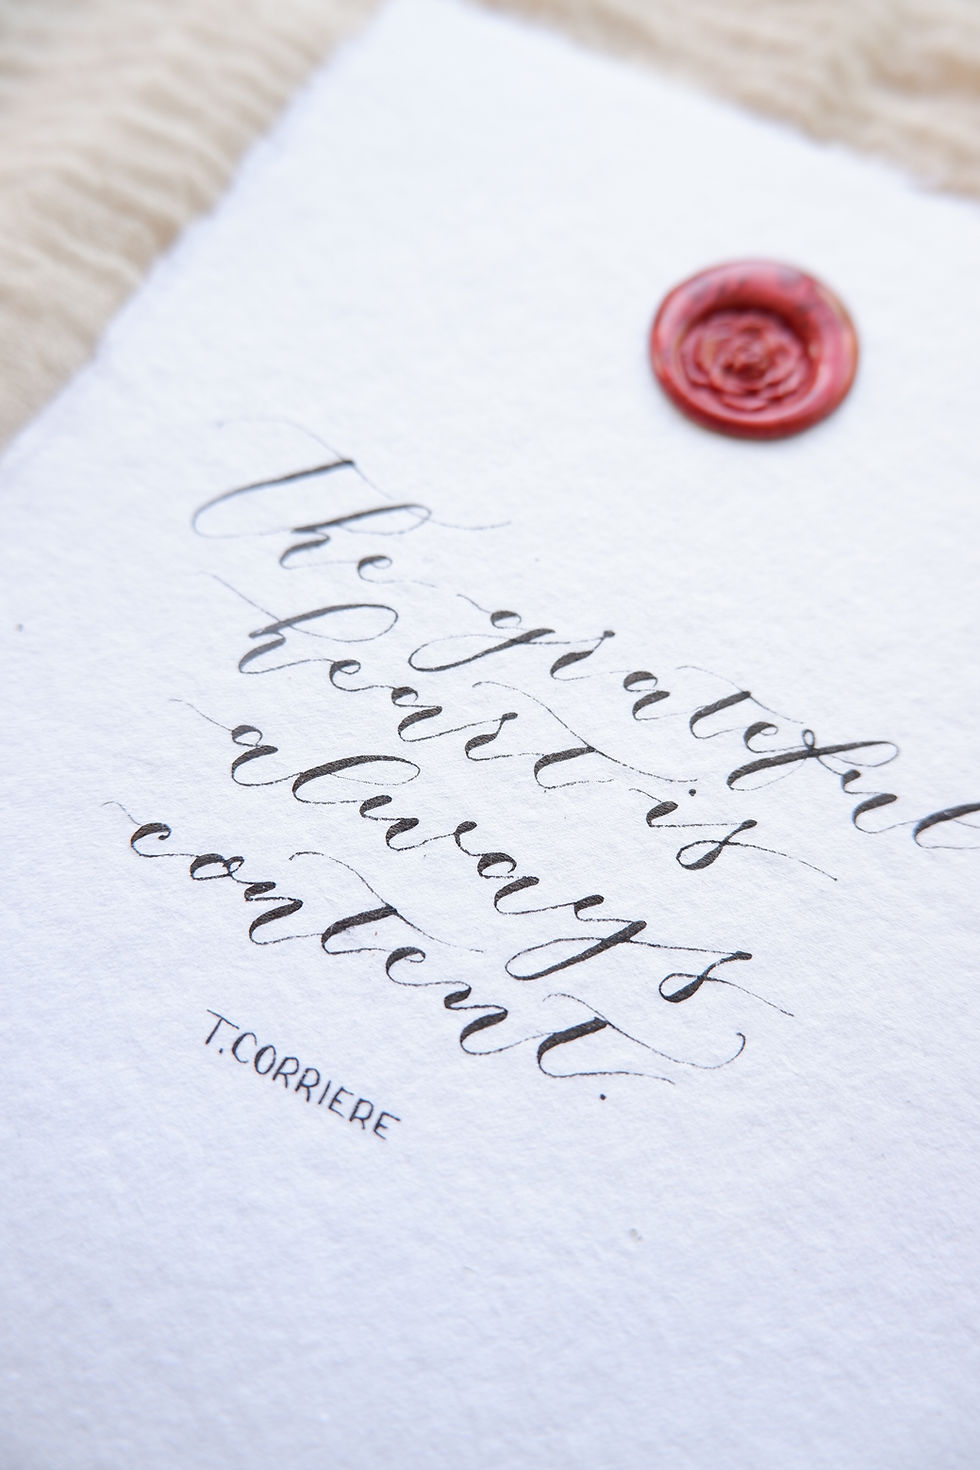 The grateful
heart is
always
content.
T.CORRIERE